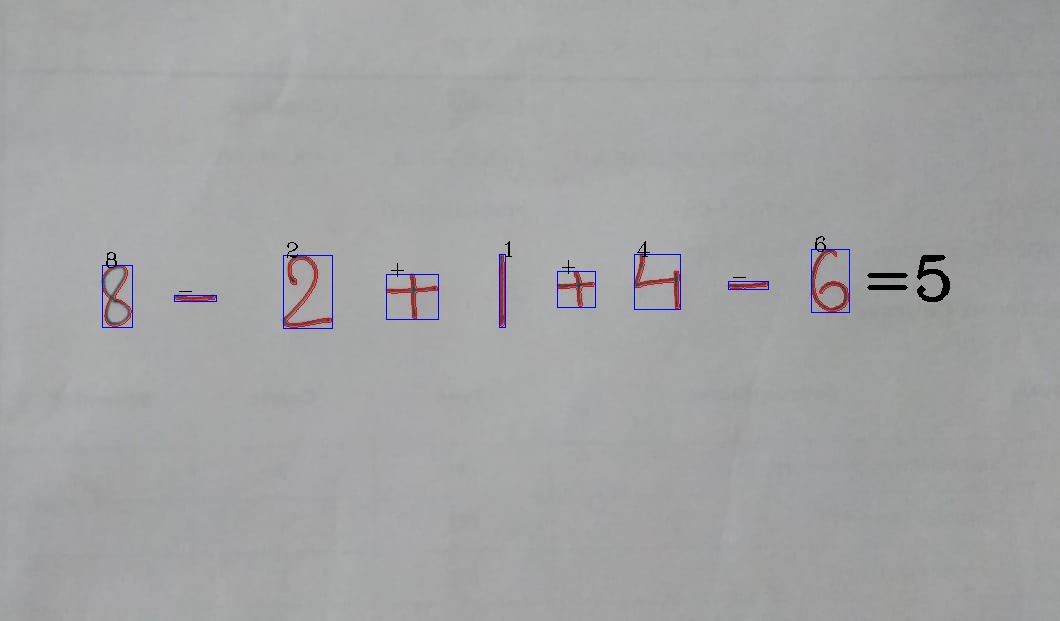 8 - 2 + 1 + 4 - 6 =5
8 - 2 + 1 + 4 - 6